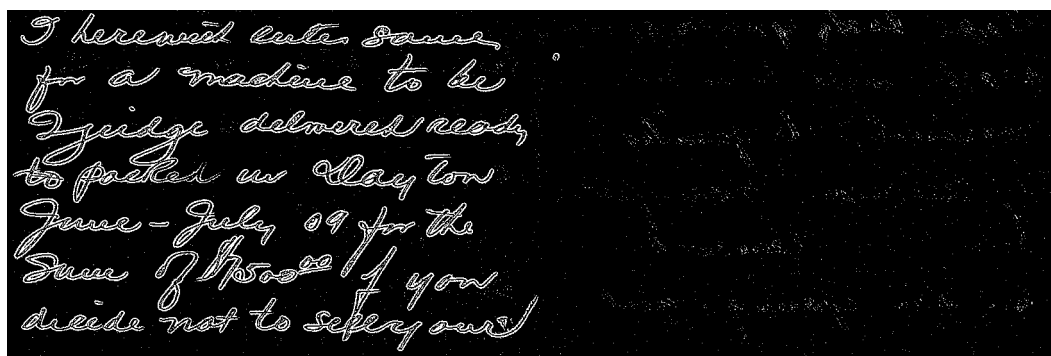 I herewith enter same
for a machine to be
I judge delivered ready
to packed in Dayton
June - July 09 for the
Sum of $7500.00 if you
decide not to sell your